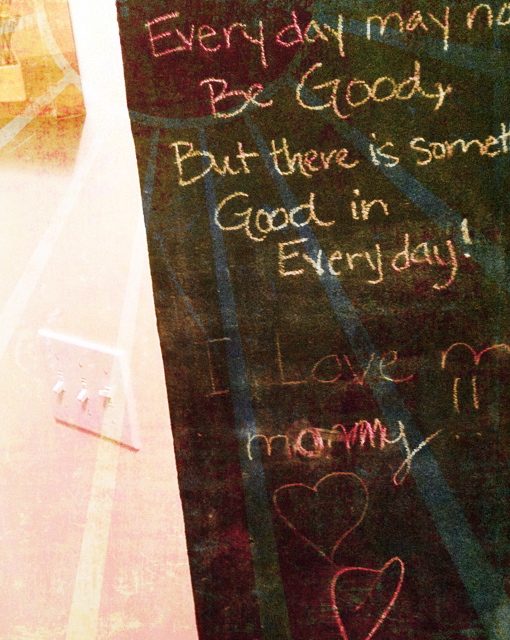 Every day may
Be Good,
But there is
Good in
Every day!
I Love
mommy